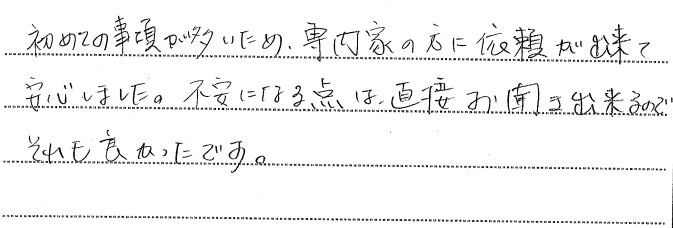 初めての事項が多いため、専門家の方に依頼が出来て
安心しました。不安になる点は、直接お聞き出来るので
それも良かったです。